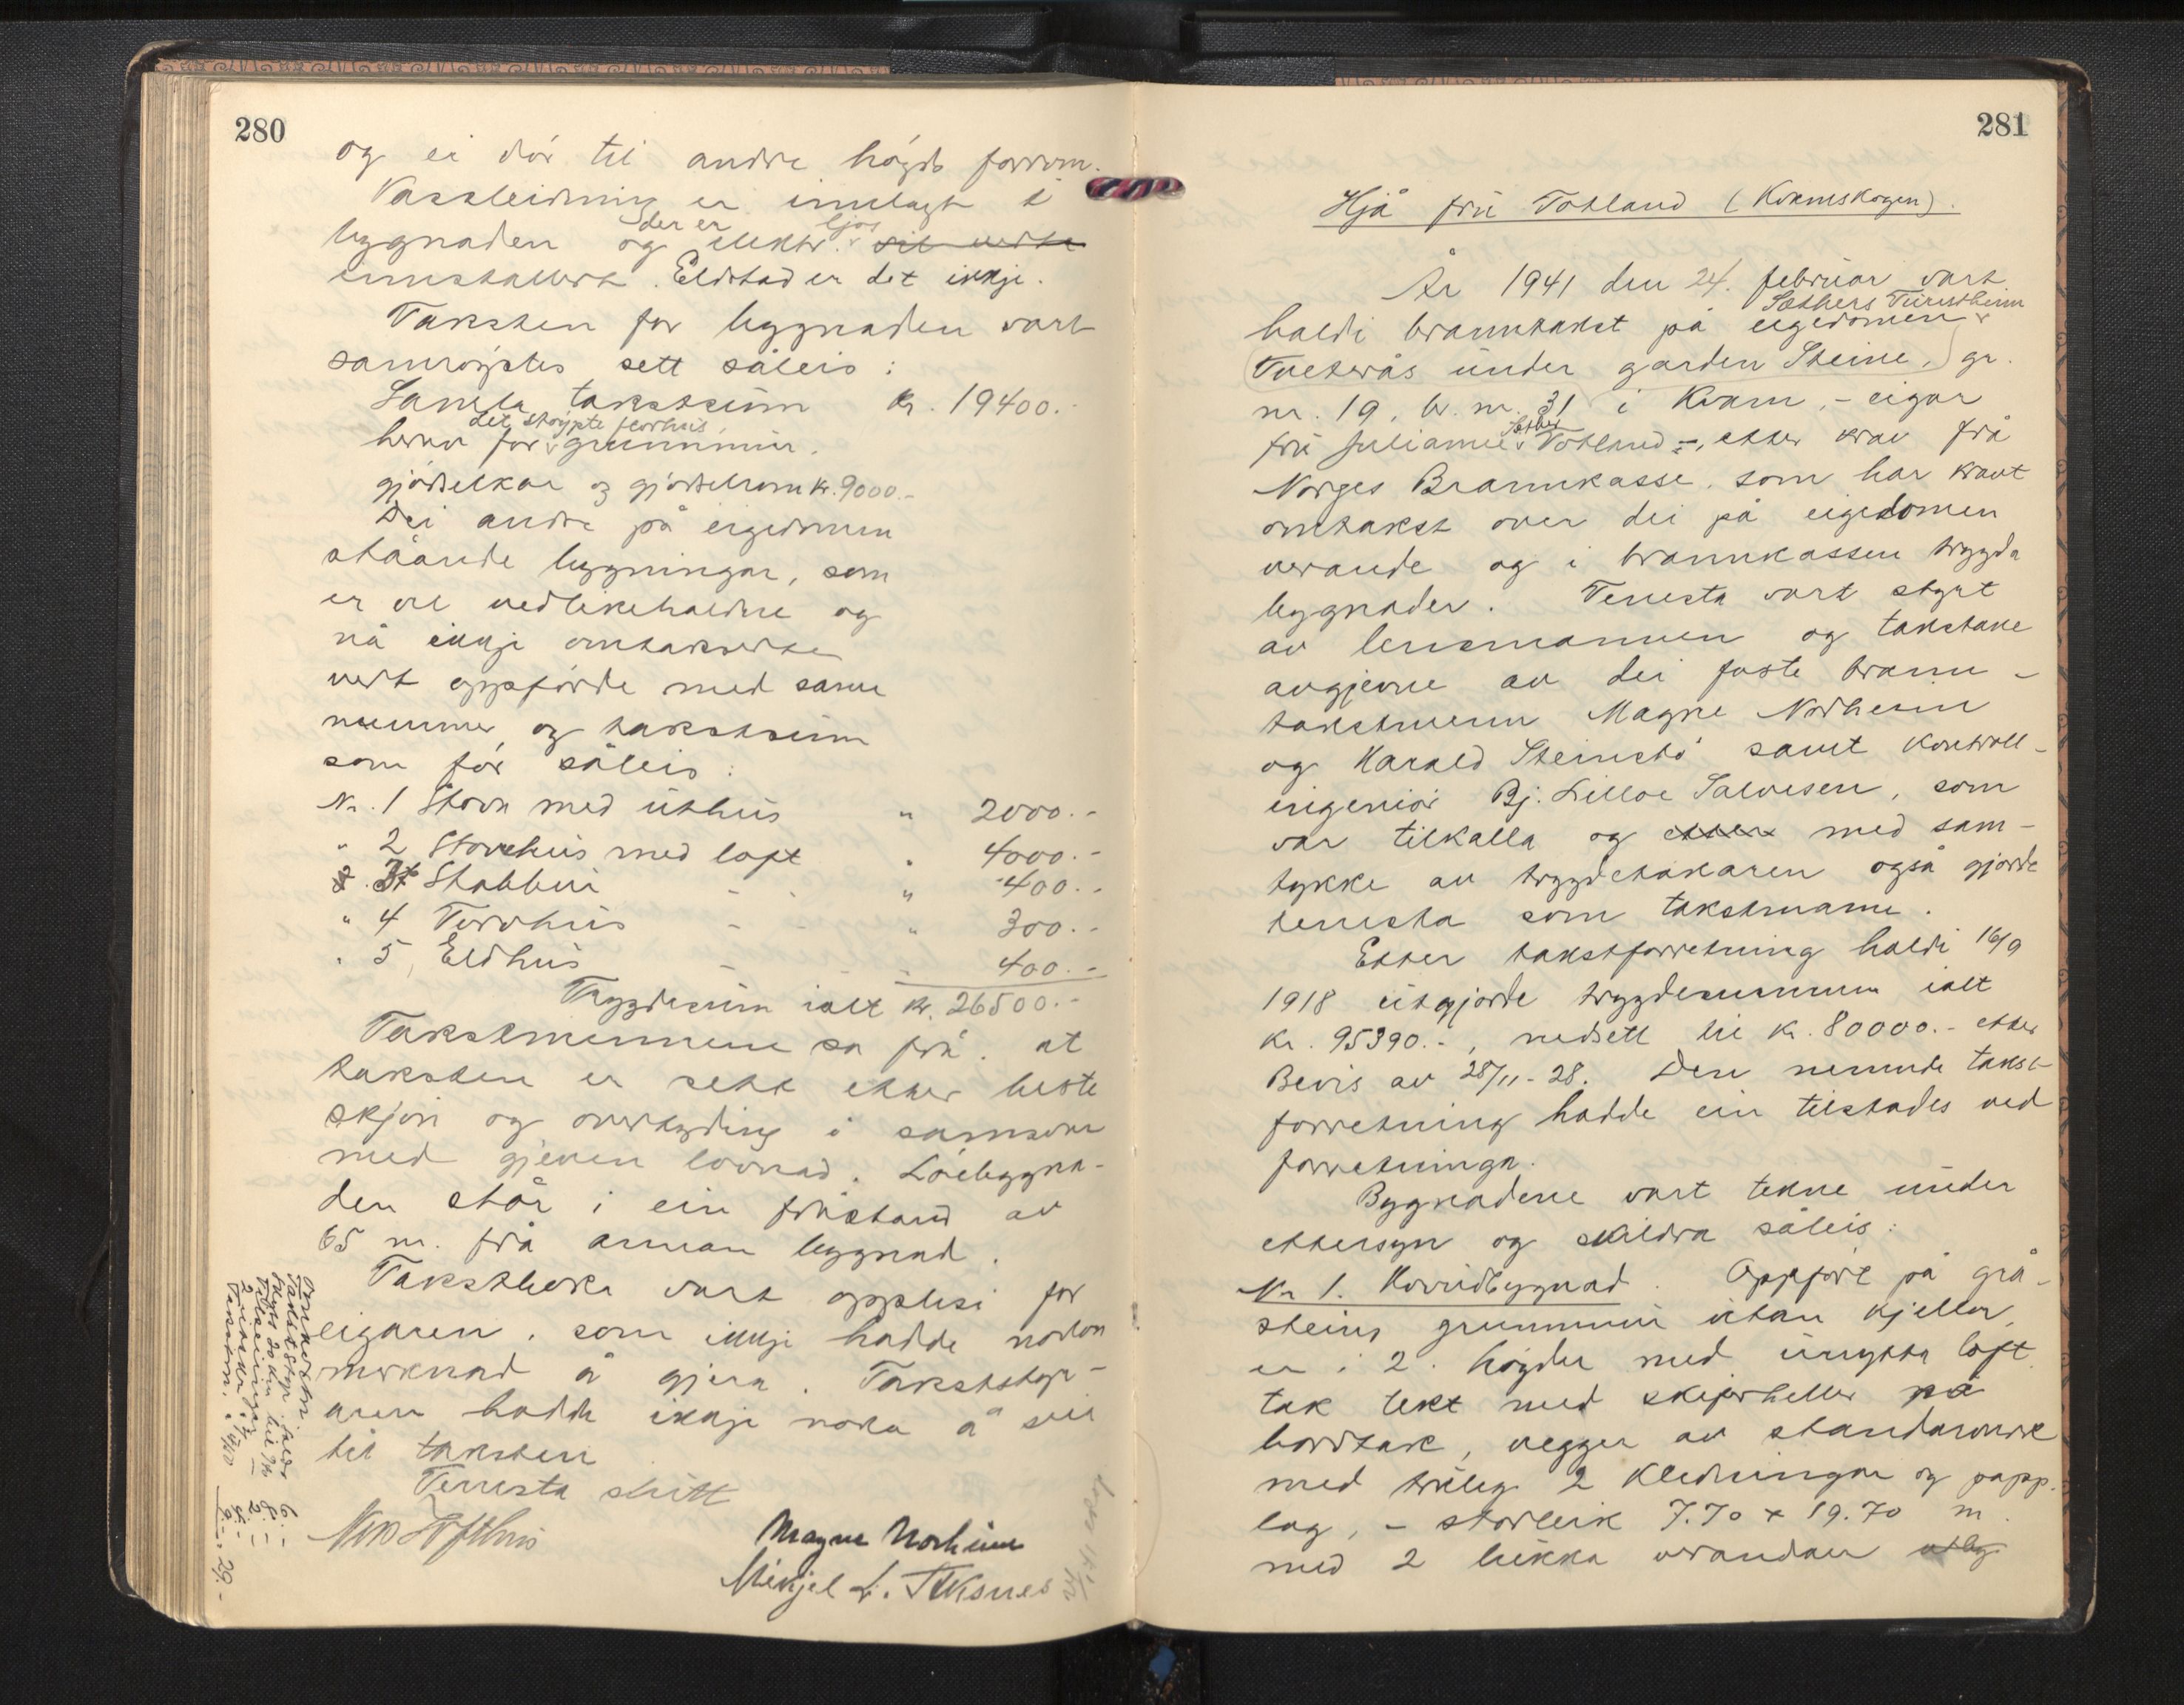 280
og ei dör til andre högds forrom.
Vassleidning er innlagt i
bygnaden og der er elektr. ljos vil verta
innstallert. Eldstad er det ikkje.
Taksten for bygnaden vart
samröystes sett såleis:
Samla takstsum kr. 19400.-
herav for det støypte florhus grunnmur,
gjödselkar og gjödselrom kr. 9000.-
Dei andre på eigedomen
ståande bygningar, som
er vel vedlikehaldne og
nå ikkje omtakserte
vert oppförde med same
nummer og takstsum
som för såleis:
Nr. 1 Stova med uthus " 2000.-
" 2 Stovehus med loft " 4000.-
" 3 Stabbur " 400.-
" 4 Torvhus " 300.-
" 5, Eldhus 400.-
Trygdesum ialt kr. 26500.-
Takstmennene sa frå at
taksten er sett etter beste
skjön og overtyding i samsvar
med gjeven lovnad. Löebygna-
den står i ein fråstand av
65 m. frå annan bygnad.
Takstboka vart opplesi for
eigaren, som ikkje hadde nokon
merknad å gjera. Takststyr-
aren hadde ikkje noka å seia
til taksten
Tenesta slutt
Magne Norheim
Mikjel L. Aksnes
281
Hjå frú Totland (Kvamskogen).
År 1941 den 24. februar vart
haldi branntakst på eigedomen Sæthers Turistheim
(Tveterås under garden Steine,) gr.
nr. 19, br. nr. 31 i Kvam, - eigar
frú Julianne Sæther Totland -, etter krav frå
Norges Brannkasse, som har kravt
omtakst over dei på eigedomen
verande og i brannkassen trygda
bygnader. Tenesta vart styrt
av lensmannen og takstane
avgjevne av dei faste brann-
takstmenn Magne Norheim
og Harald Steinstö samt kontroll-
ingeniör Bj. Lilloe Salvesen, som
var tilkalla og etter med sam-
tykke av trygdetakaren også gjorde
tenesta som takstmann.
Etter takstforretning haldi 16/9
1918 utgjorde trygdesummen ialt
kr. 95390.-, nedsett til kr. 80000.- etter
Bevis av 28/11-28. Den nemnde takst-
forretning hadde ein tilstades ved
forretninga.
Bygnadene vart tekne under
ettersyn og skildra såleis:
Nr 1. Hovudbygnad. Oppfört på grå-
steins grunnmur utan kjellar,
er i 2. högder med unytta loft
tak tekt med skiferheller på
bordtak, vegger av standarverk
med utvleg 2 kledningar og papp.
lag, - storleik 7.70 x 19.70 m.
med 2 lukka verandaer utleg